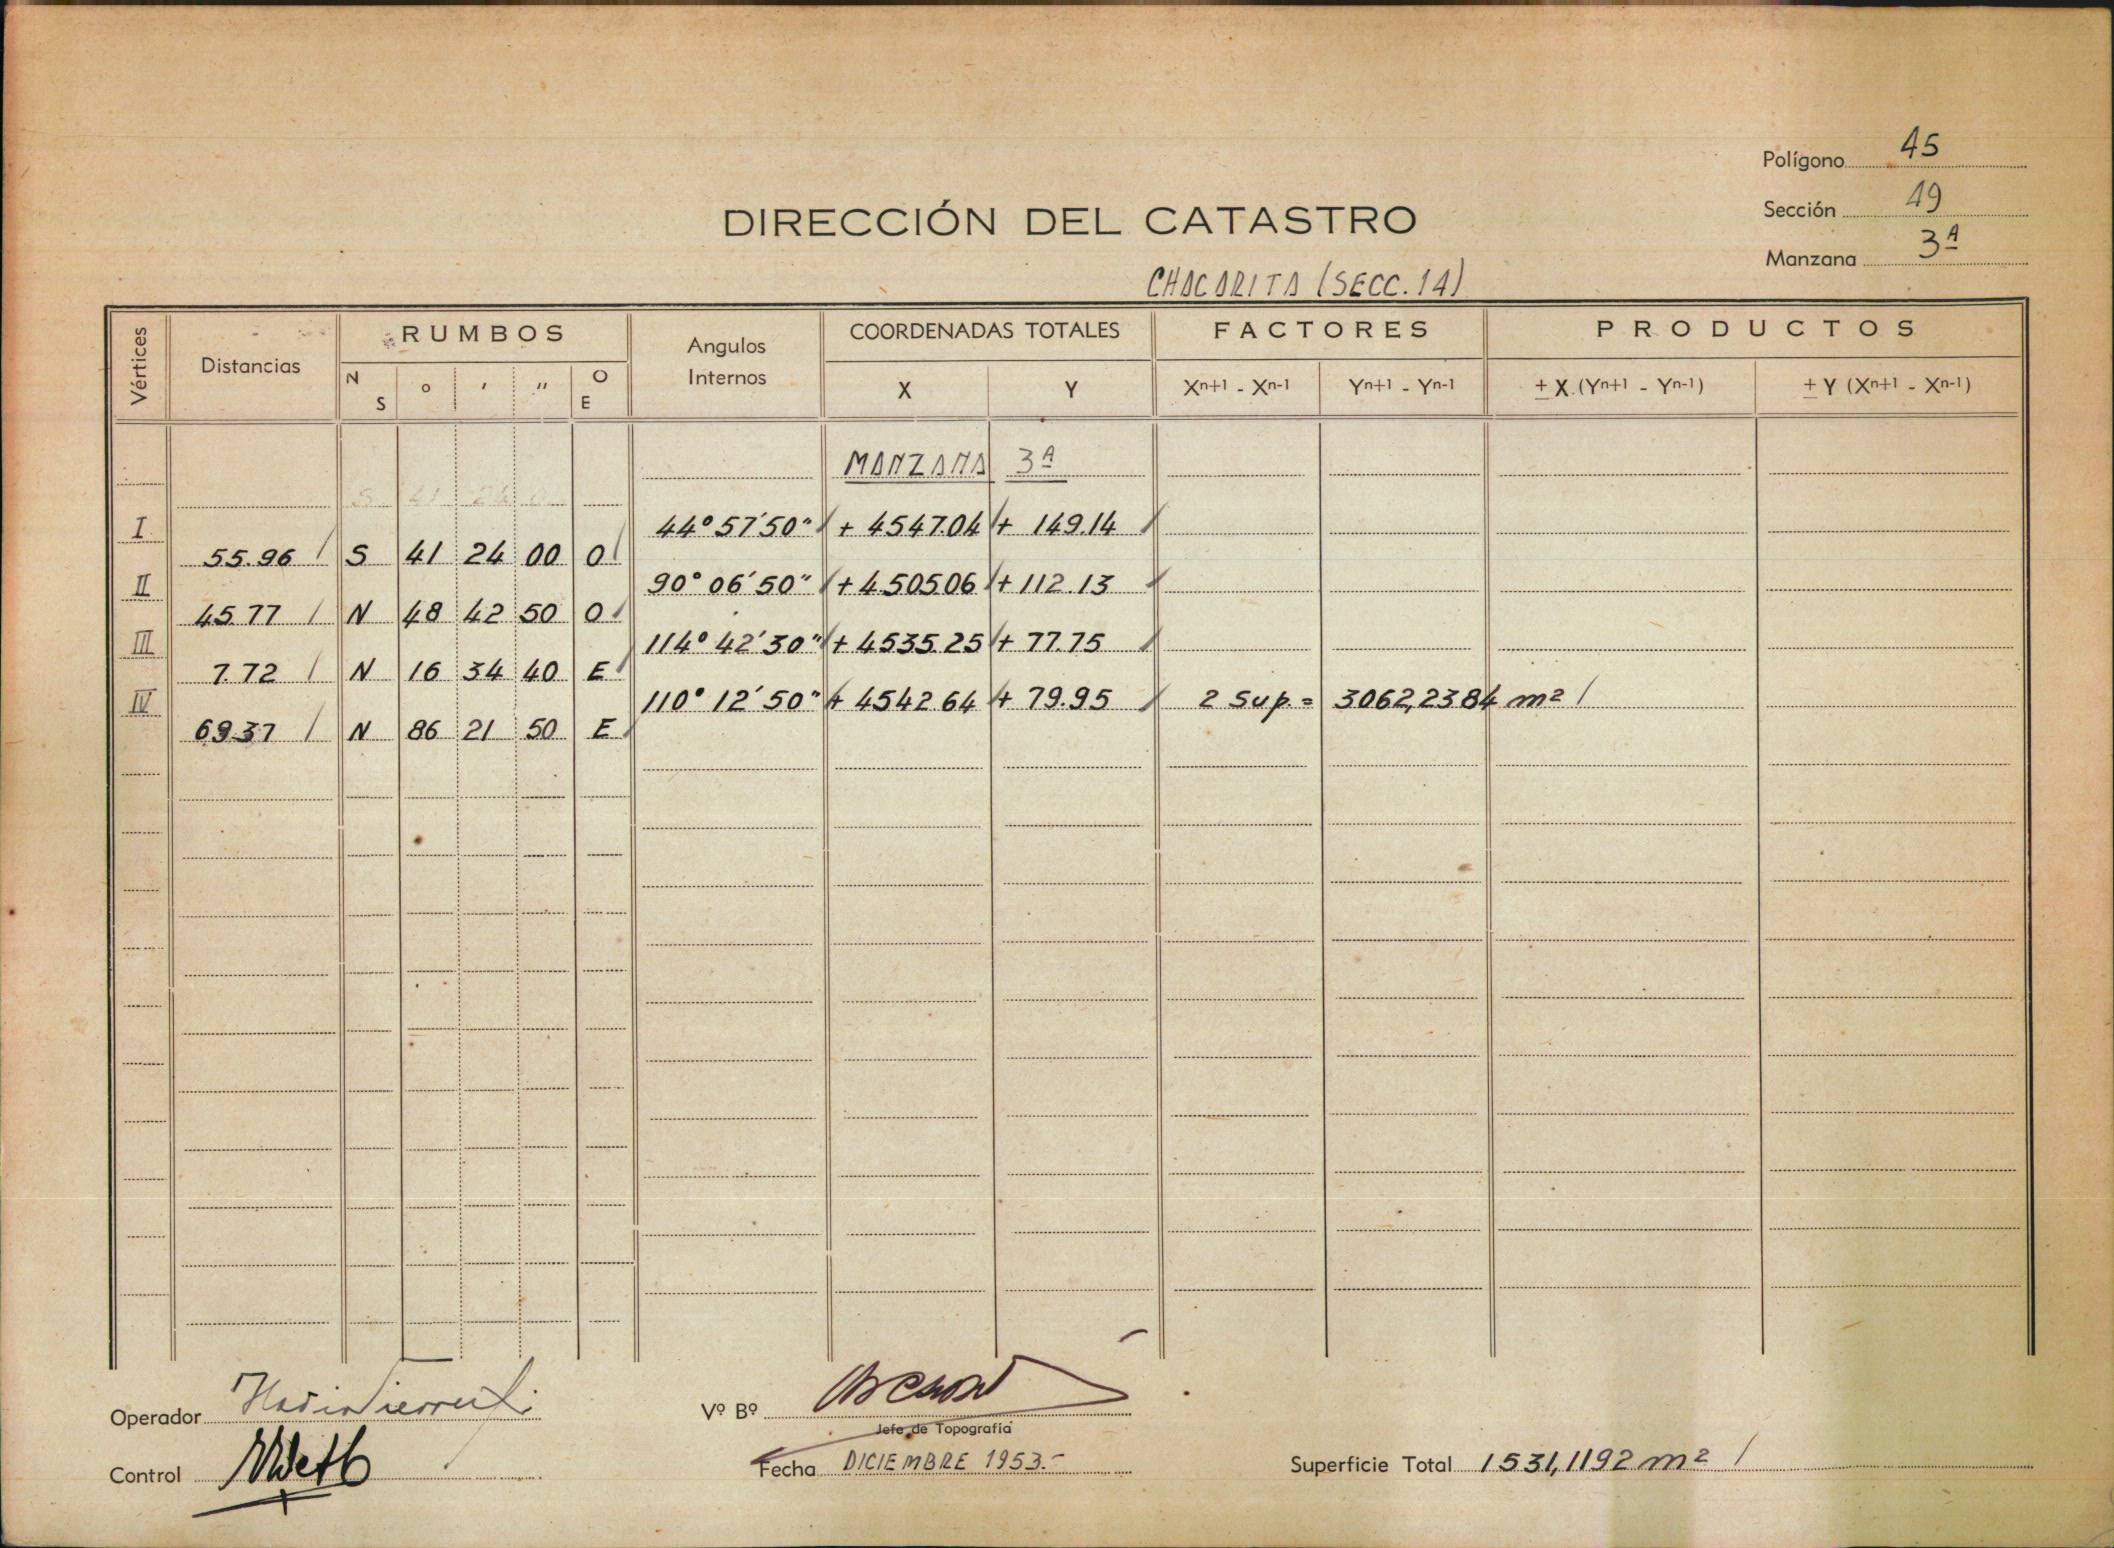 Polígono 45
Sección 19
Manzana 3A
DIRECCIÓN DEL CATASTRO
CHACARITA (SECC. 14)
Vértices Distancias RUMBOS Angulos Internos COORDENADAS TOTALES FACTORES PRODUCTOS
N S ° ′ ″ O E X Y Xn+1 - Xn-1 Yn+1 - Yn-1 ± X (Yn+1 - Yn-1) ± Y (Xn+1 - Xn-1)
MANZANA 3A
S 41 24
I 44° 57′ 50″ + 4547.04 + 149.14
55.96 S 41 24 00 O
II 90° 06′ 50″ + 4505.06 + 112.13
45.77 N 48 42 50 O
III 114° 42′ 30″ + 4535.25 + 77.75
7.72 N 16 34 40 E
IV 110° 12′ 50″ + 4542.64 + 79.95 2 Sup. = 3062,2384 m²
69.37 N 86 21 50 E
Operador
Vº Bº
Jefe de Topografía
Control
Fecha DICIEMBRE 1953.-
Superficie Total 1531,1192 m²